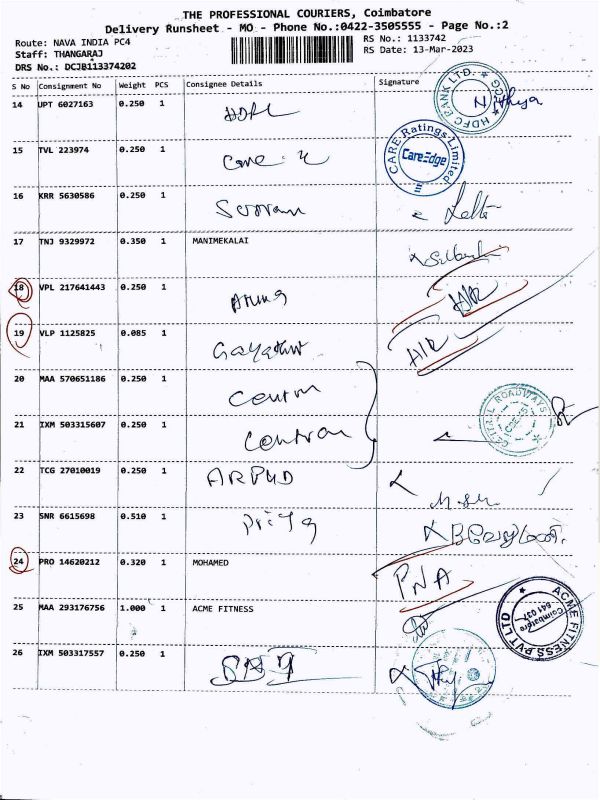 THE PROFESSIONAL COURIERS, Coimbatore
Delivery Runsheet - MO - Phone No.:0422-3505555 - Page No.:2
Route: NAVA INDIA PC4 RS No.: 1133742
Staff: THANGARAJ RS Date: 13-Mar-2023
DRS No.: DCJB113374202
S No Consignment No Weight PCS Consignee Details Signature
14 UPT 6027163 0.250 1 HDFC Nithya
HDFC BANK LTD.
15 TVL 223974 0.250 1 Care
CARE Ratings Limited
CareEdge
16 KRR 5630586 0.250 1
17 TNJ 9329972 0.350 1 MANIMEKALAI
18 VPL 217641443 0.250 1 Aruna
19 VLP 1125825 0.085 1 Gayathri
20 MAA 570651186 0.250 1
21 IXM 503315607 0.250 1
ROADWAYS
22 TCG 27010019 0.250 1
23 SNR 6615698 0.510 1 Priya
24 PRO 14620212 0.320 1 MOHAMED PNA
25 MAA 293176756 1.000 1 ACME FITNESS
ACME FITNESS PVT LTD
Coimbatore
641 037
26 IXM 503317557 0.250 1